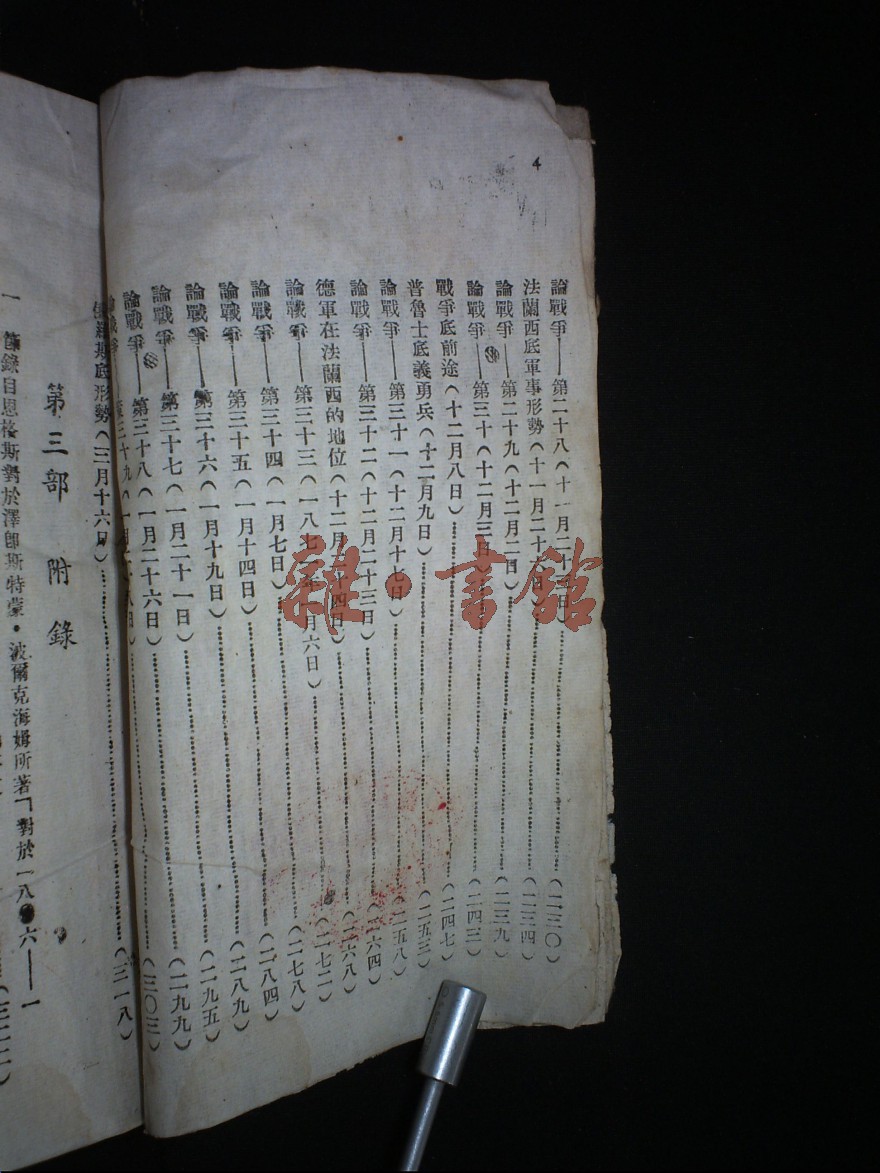 4
論戰爭——第二十八(十一月二十三日)……(二三〇)
法蘭西底軍事形勢(十一月二十六日)……(二三四)
論戰爭——第二十九(十二月二日)……(二三九)
論戰爭——第三十(十二月三日)……(二四三)
戰爭底前途(十二月八日)……(二四七)
普魯士底義勇兵(十二月九日)……(二五三)
論戰爭——第三十一(十二月十七日)……(二五八)
論戰爭——第三十二(十二月二十三日)……(二六四)
德軍在法蘭西的地位(十二月二十四日)……(二六八)
論戰爭——第三十三(一八七一年一月六日)……(二七二)
論戰爭——第三十四(一月七日)……(二七八)
論戰爭——第三十五(一月十四日)……(二八四)
論戰爭——第三十六(一月十九日)……(二八九)
論戰爭——第三十七(一月二十一日)……(二九五)
論戰爭——第三十八(一月二十六日)……(二九九)
論戰爭——第三十九(一月二十八日)……(三〇三)
底形勢(三月十六日)……(三一八)
第三部 附錄
一 節錄自恩格斯對於澤郎斯特蒙·波爾克海姆所著「對於一八〇六——一
雜·書館